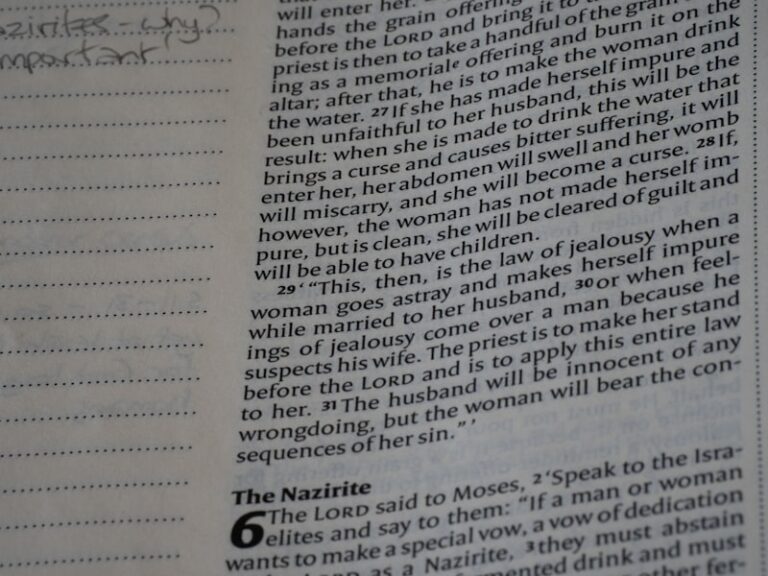 azirites - why?
important
will enter her.
hands the grain offering
before the LORD and bring it to the
priest is then to take a handful of the grain
ing as a memorialᵉ offering and burn it on the
altar; after that, he is to make the woman drink
the water. 27 If she has made herself impure and
been unfaithful to her husband, this will be the
result: when she is made to drink the water that
brings a curse and causes bitter suffering, it will
enter her, her abdomen will swell and her womb
will miscarry, and she will become a curse. 28 If,
however, the woman has not made herself im-
pure, but is clean, she will be cleared of guilt and
will be able to have children.
29 ‘ “This, then, is the law of jealousy when a
woman goes astray and makes herself impure
while married to her husband, 30 or when feel-
ings of jealousy come over a man because he
suspects his wife. The priest is to make her stand
before the LORD and is to apply this entire law
to her. 31 The husband will be innocent of any
wrongdoing, but the woman will bear the con-
sequences of her sin.” ’
The Nazirite
6 The LORD said to Moses, 2 ‘Speak to the Isra-
elites and say to them: “If a man or woman
wants to make a special vow, a vow of dedication
LORD as a Nazirite, 3 they must abstain
mented drink and must
other fer-